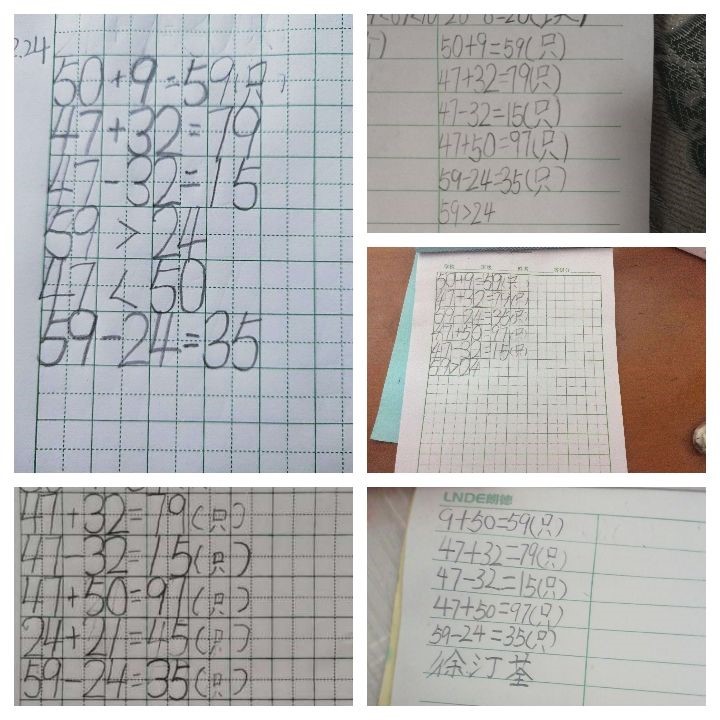 2.24
50+9=59(只)
47+32=79
47-32=15
59 > 24
47 < 50
59-24=35
50+9=59(只)
47+32=79(只)
47-32=15(只)
47+50=97(只)
59-24=35(只)
59>24
学校 班级 姓名
50+9=59(只)
47+32=79(只)
59-24=35(只)
47+50=97(只)
47-32=15(只)
59>24
47+32=79(只)
47-32=15(只)
47+50=97(只)
24+21=45(只)
59-24=35(只)
LNDE朗德
9+50=59(只)
47+32=79(只)
47-32=15(只)
47+50=97(只)
59-24=35(只)
徐汀荃